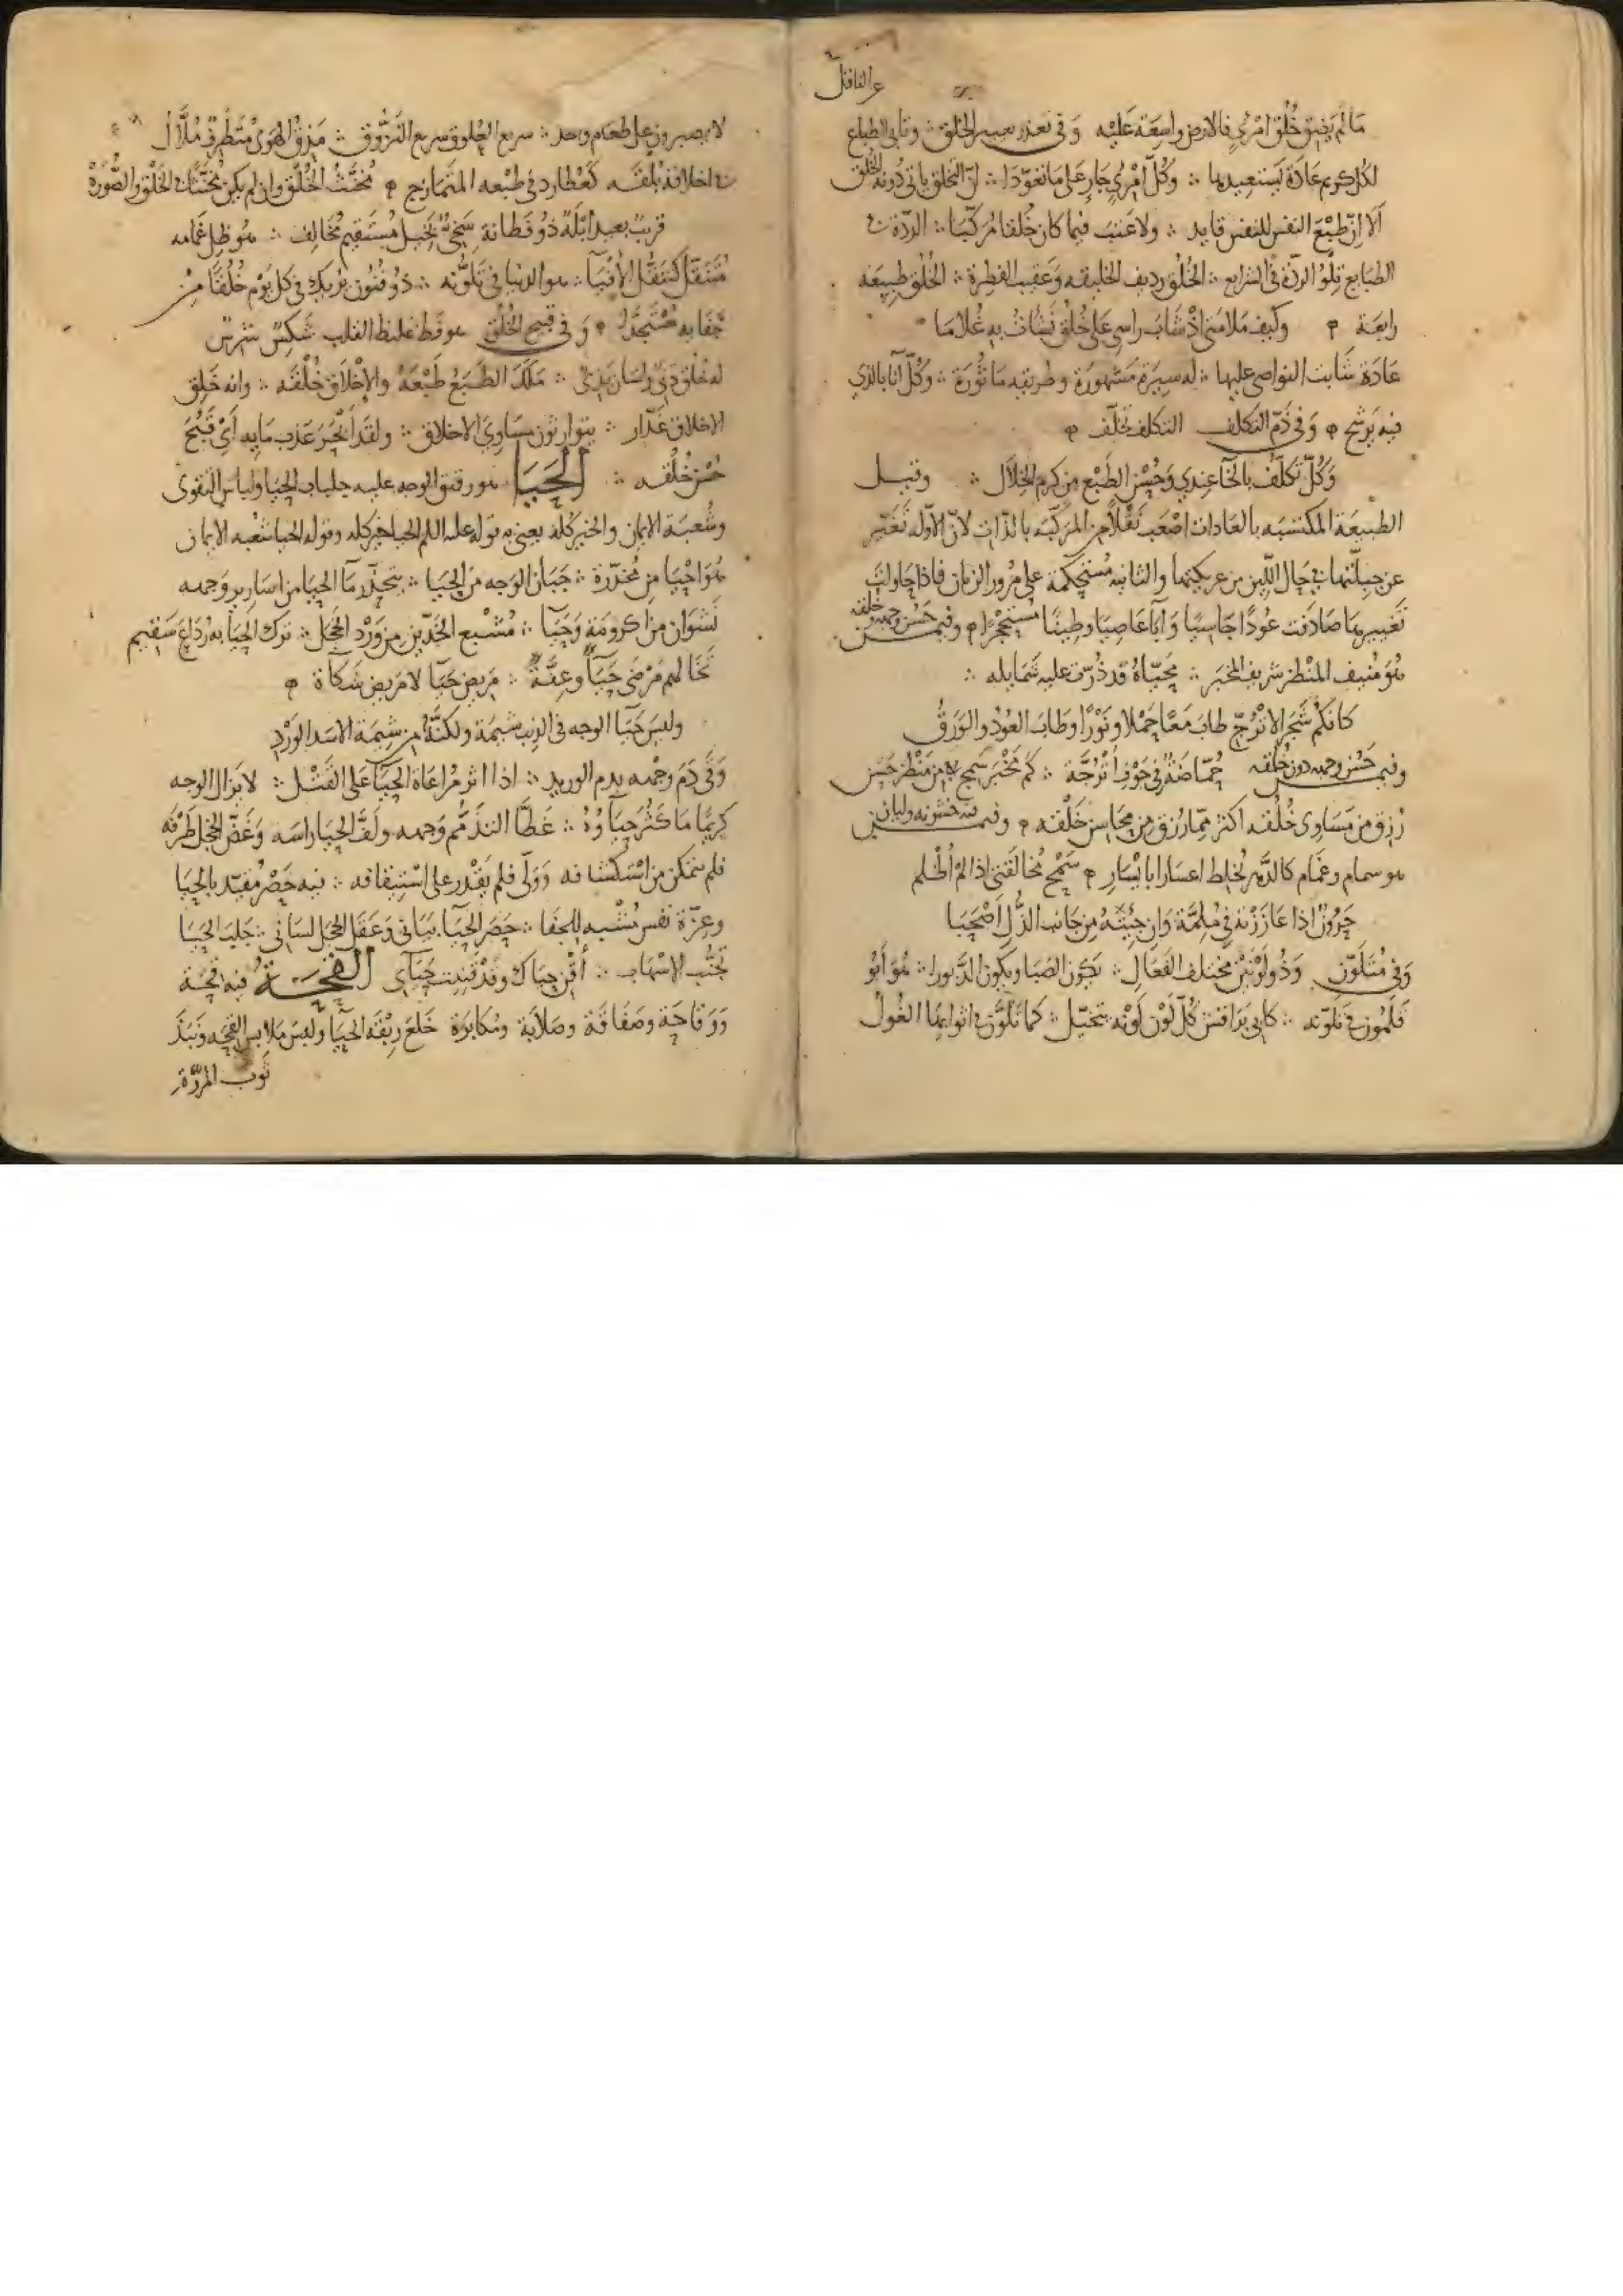 ما لم يضق خلق امرئ فالارض واسعة عليه وفى تعذر تغيير الخلق ∴ وتأبى الطباع
لكل كريم عادة يستعيدها ∴ وكل امرئ جار على ما تعودا ∴ ان التخلق ياتى دونه الخلق
الا ان طبع النفس للنفس قايد ∴ ولا عتب فيما كان خلقا مركبا ∴ الردة فى
الطبايع تلو الردة فى الشرايع ∴ الخلق رديف الخليقه وعقيب الفطرة ∴ الخلق طبيعه
رابعة وكيف ملامتى اذ شاب راسى على خلق نشأت به غلاما
عادة شابت النواصى عليها ∴ له سيرة مشهورة وطريقه ماثورة ∴ وكل انا بالذي
فيه يرشح وفى ذم التكلف التكلف تخلف
وكل تكلف بالخا عندي وحسن الطبع من كرم الخلال ∴ وقيل
الطبيعة المكتسبه بالعادات اصعب نقلا من المركبه بالذات لان الاوله تغير
عن جبلتها فى حال اللين من عريكتها والثانيه مستحكمة على مرور الزمان فاذا حاولت
تغييرها صادفت عودا جاسيا وابا عاصيا وطينا مستحجرا وفيمن حسن وجهه وخلقه
هو منيف المنظر شريف المخبر ∴ محياه قد ذرت عليه شمايله ∴
كانكم شجر الاترج طاب معا حملا ونورا وطاب العود والورق
وفيمن حسن وجهه دون خلقه حماضة فى جوف اترجة ∴ كم مخبر سمج من منظر حسن
رزق من مساوى خلقه اكثر مما رزق من محاسن خلقه وفيمن فيه خشونه وليان
هو سمام وغمام كالدهر يخلط اعسارا بايسار سمح مخالقتى اذا لم اظلم
حرون اذا عاززته فى ملمة وان جيته من جانب الذل اصحبا
وفى متلون وذو لونين مختلف الفعال ∴ يكون الصبا ويكون الدبورا ∴ هو ابو
قلمون فى تلونه ∴ كابى براقش كل لون لونه يتخيل ∴ كما تلون فى اثوابها الغول
لا يصبرون على طعام واحد ∴ سريع العلوق سريع النزوق ∴ مذق الهوى متطرف ملال
فى اخلاقه بلقه كعطارد فى طبعه المتمازج مخنث الخلق وان لم يكن مخنث الخلق والصورة
قريب بعيد ابله ذو فطانة سخى بخيل مستقيم مخالف ∴ هو ظل غمامه
متنقل كتنقل الافيا ∴ هو الدنيا فى تلونه ∴ ذو فنون يريك فى كل يوم خلقا من
جفايه مستجدا وفى قبيح الخلق هو فظ غليظ القلب شكس شرس
له خلق دنى ولسان بذى ∴ ملك الطبع طبعه والاخلاق خلقه ∴ وانه خلق
الاخلاق غدار ∴ يتوارثون مساوى الاخلاق ∴ ولقد انجر عذب مايه اى قبح
حسن خلقه ∴ الحيا هو رقيق الوجه عليه جلباب الحيا ولباس التقوى
وشعبة الايمان والخير كله يعنى به قوله عليه السلم الحيا خير كله وقوله الحيا شعبه الايمان
هو احيا من مخدرة ∴ جبان الوجه من الحيا ∴ يتحدر ما الحيا من اسارير وجهه
نشوان من اكرومة وحيا ∴ مشبع الخدين من ورد الخجل ∴ ترك الحيا به رداع سقيم
تخالهم مرضى حيا وعفة ∴ مريض حيا لا مريض شكاة
وليس حيا الوجه فى الذيب شيمة ولكنه من شيمة الاسد الورد
وقى دم وجهه بدم الوريد ∴ اذا اثر مراعاة الحيا على القتل ∴ لا يزال الوجه
كريما ما كثر حياوه ∴ غطا التذمم وجهه ولف الحيا راسه وغض الخجل طرفه
فلم يتمكن من استكشافه وولى فلم يقدر على استيقافه ∴ فيه حصر مقيد بالحيا
وعزة نفس مشبه للجفا ∴ حصر الحيا بيانى وعقل الخجل لسانى ∴ جلب الحيا
تجنب الاسهاب ∴ أقن حياك وقد قنيت حياى القحة فيه قحة
ووقاحة وصفاقة وصلابة ومكابرة خلع ربقه الحيا ولبس ملابس القحه ونبذ
ثوب المروة